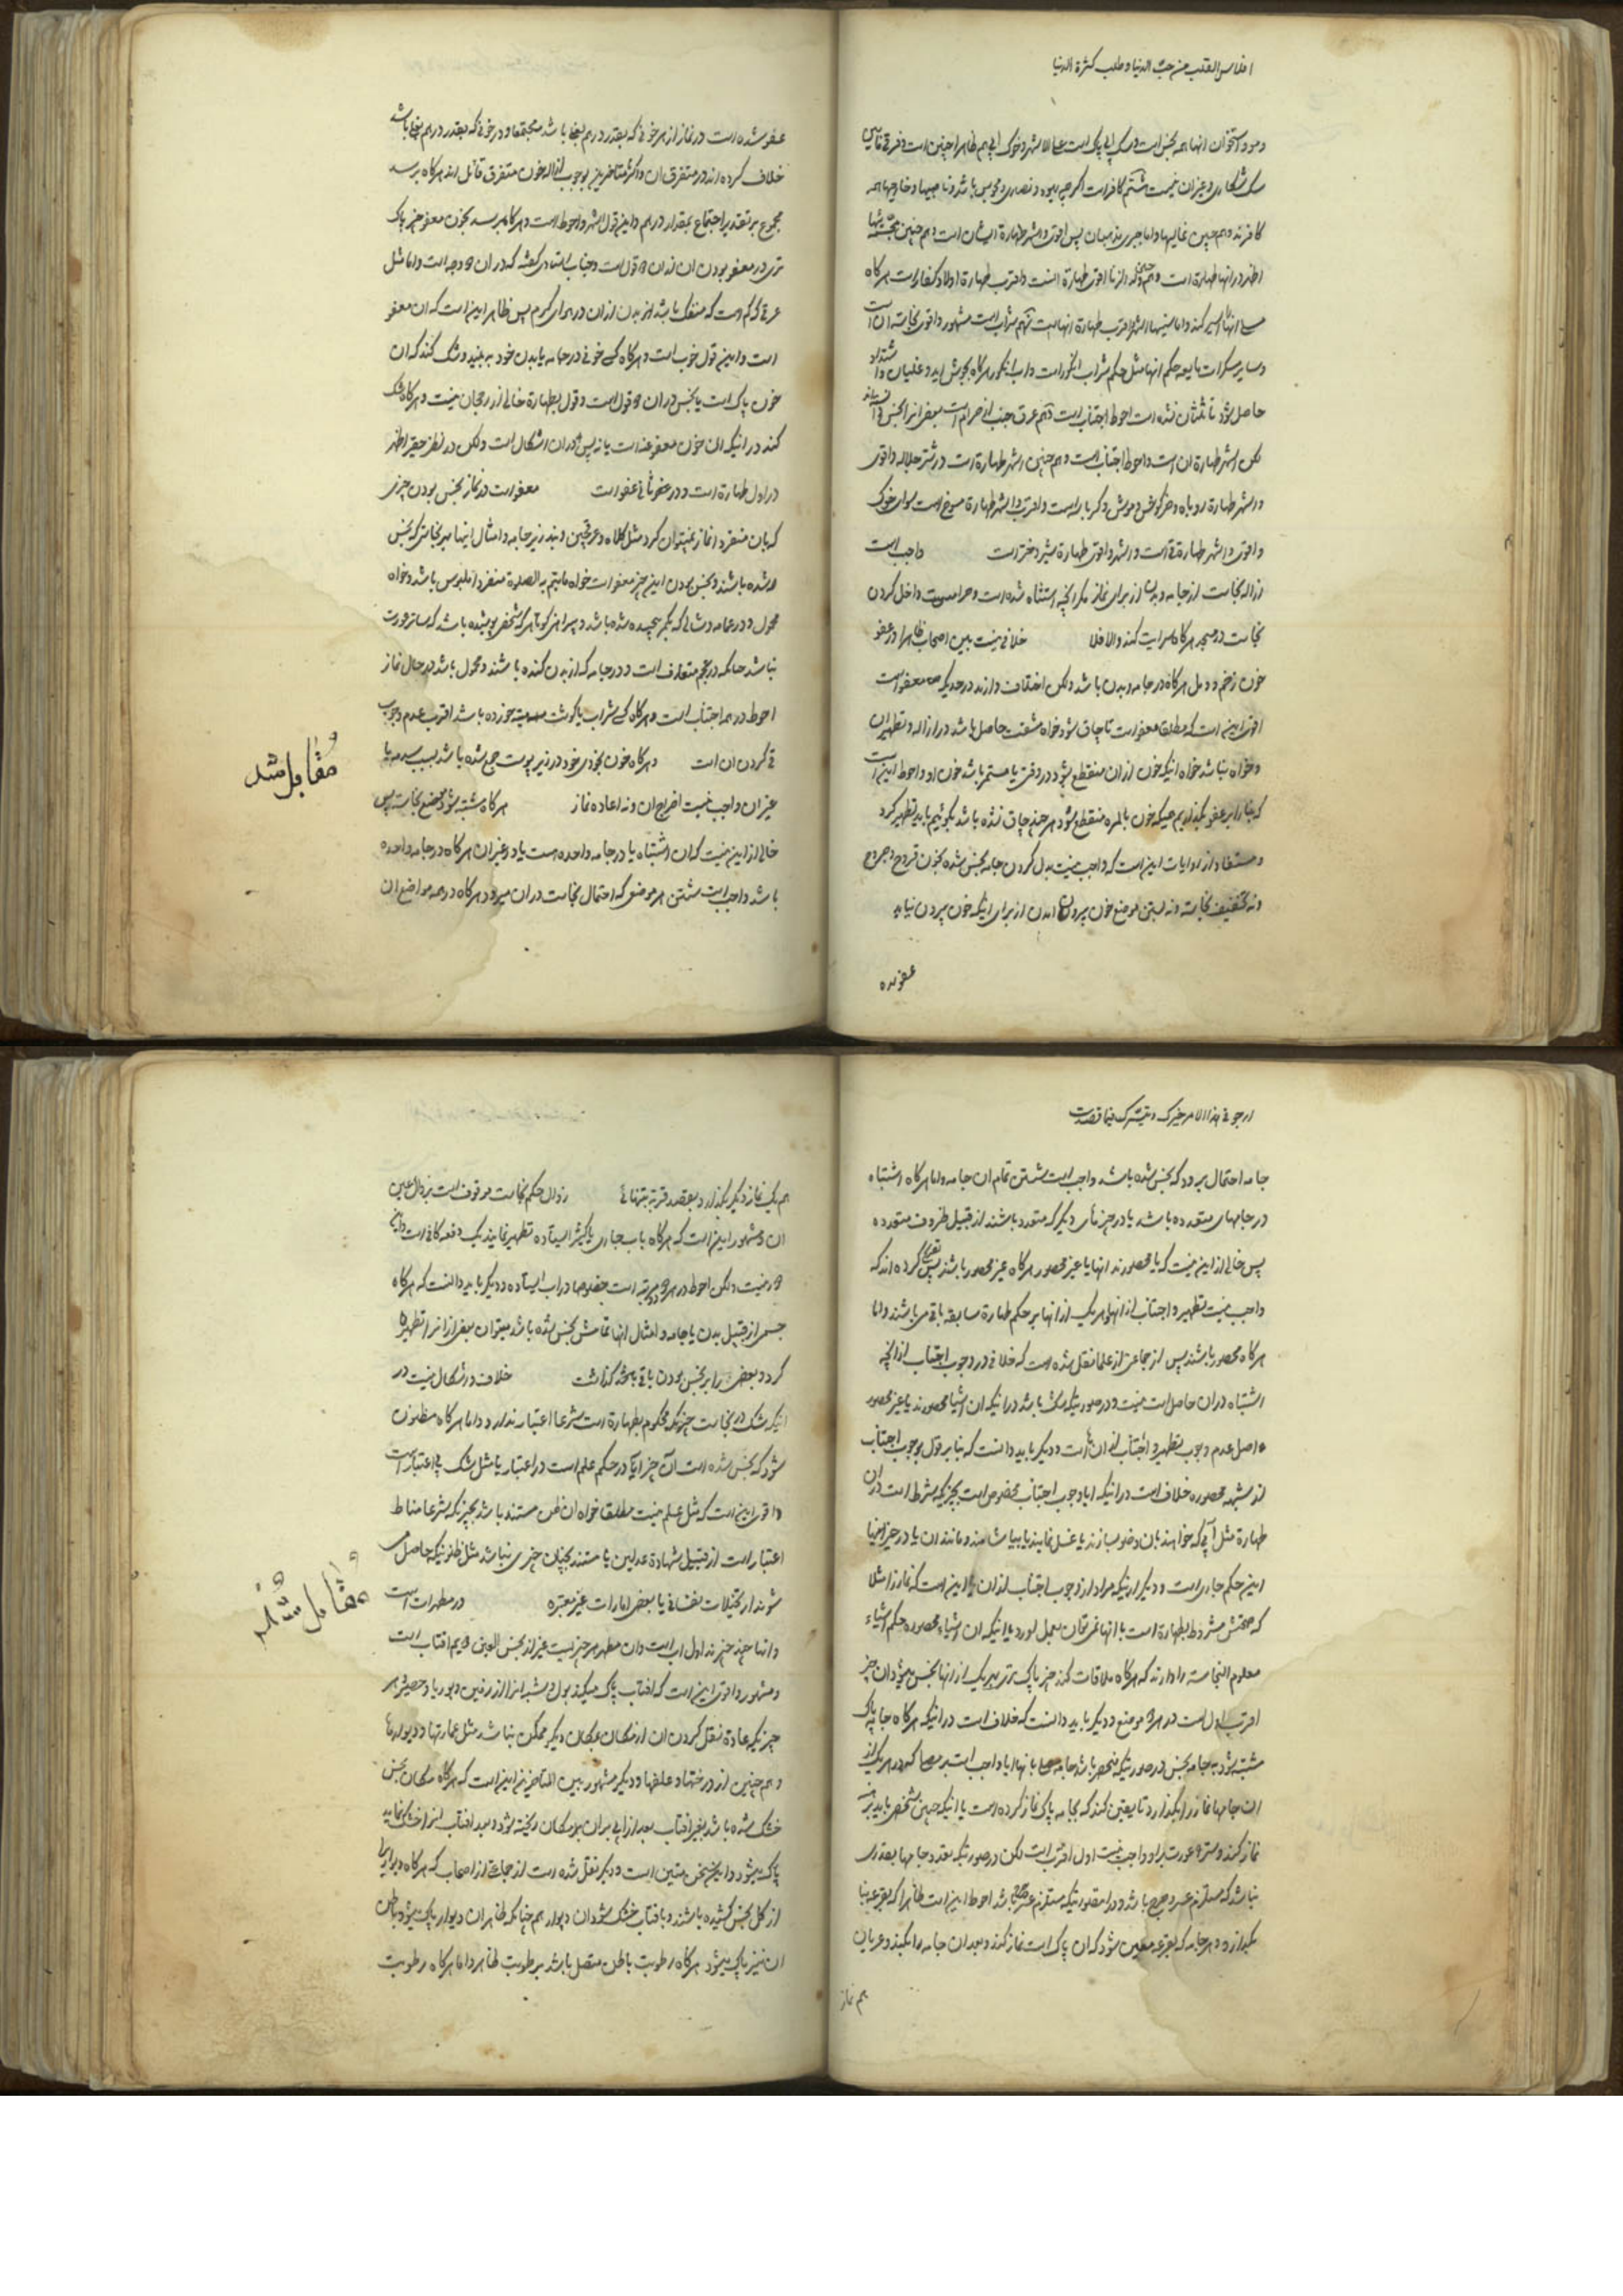 افلاس القلب من حب الدنیا و طلب کثرة الدنیا
و مو و استخوان انها همه نجس است و سک ابی پاک است علی الاشهر و خوک ابی هم ظاهرا چنین است و فرقی مابین
سک شکاری و غیر ان نیست ششم کافر است اکرچه یهود و نصاری و مجوس باشد و ناصبیها و خارجیها همه
کافرند و هم چنین غالیها و اما جبری مذهبان پس اقوی و اشهر طهارة ایشان است و هم چنین
اظهر در انها طهارة است و هم ولد الزنا اقوی طهارة انست و اقرب طهارة اولاد کفار است هرکاه
مشهور و اقوی نجاسة ان است
و سایر مسکرات مایعه حکم انها مثل حکم شراب انکور است و اب انکور هرکاه بجوش اید و غلیان و اشتداد
حاصل شود تا ثلثان نشده است احوط اجتناب است نهم عرق جنب از حرام است بعضی انرا نجس
لکن اشهر طهارة ان است و احوط اجتناب است و هم چنین اشهر طهارة است در شتر جلاله و اقوی
و اشهر طهارة روباه و خرکوش و موش و کربه است و اقرب و اشهر طهارة مسوخ است سوای خوک
و اقوی و اشهر طهارة قی است و اشهر و اقوی طهارة شیر دختر است واجب است
ازاله نجاست از جامه و بدن از برای نماز مکر انچه استثناء شده است و حرامست داخل کردن
نجاست در مسجد هرکاه سرایت کند و الا فلا خلافی نیست بین اصحاب ظاهرا در عفو
خون زخم و دمل هرکاه در جامه و بدن باشد و لکن اختلاف دارند در حدیکه معفو است
اقوی این است که مطلقا معفو است تا چاق شود خواه مشقت حاصل باشد در ازاله و تطهیر ان
و خواه نباشد خواه اینکه خون از ان منقطع شود در وقتی یا مستمر باشد خون او و احوط این است
که بنا را بر عفو بکذاریم همینکه خون بالمره منقطع شود هرچند چاق نشده باشد بکوئیم باید تطهیر کرد
و مستفاد از روایات این است که واجب نیست بدل کردن جامه نجس شده بخون قروح و جروح
و نه تخفیف نجاسة و نه بستن موضع خون بیرون امدن از برای اینکه خون بیرون نیاید
عفو شده
عفو شده است در نماز از هر خونی که بقدر درهم بغلی باشد مجتمعا و در خونی که بقدر درهم بغلی باشد
خلاف کرده اند در متفرق ان و اکثر متاخرین بوجوب ازاله خون متفرق قائل اند هرکاه برسد
مجموع بر تقدیر اجتماع بمقدار درهم و این قول اشهر و احوط است و هرکاه برسد بخون معفو چیز پاک
تری در معفو بودن ان
عرق کم است که منفک باشد از بدن انسان در هوای کرم پس ظاهر این است که ان معفو
است و این قول خوب است و هرکاه کسی خونی در جامه یا بدن خود به بیند و شک کند که ان
خون پاک است یا نجس در ان دو قول است و قول بطهارة خالی از رجحان نیست و هرکاه شک
کند در اینکه ان خون معفو عنه است یا نه پس در ان اشکال است و لکن در نظر حقیر اظهر
در اول طهارة است و در ثانی عفو است معفو است در نماز نجس بودن چیزی
که بان منفردا نماز نمیتوان کرد مثل کلاه و عرقچین و بند زیر جامه و امثال اینها بهر نجاستی که نجس
شده باشند و نجس بودن این چیز معفو است خواه مایتم به الصلوة منفردا ملبوس باشد و خواه
محمول و در عمامه و شالی که بکمر پیچیده شده باشد و پیراهن کوتاهی که شخصی پوشیده باشد که ساتر عورت
نباشد چنانکه در عجم متعارف است و در جامه که از بدن کنده باشند و محمول باشد در حال نماز
احوط در همه اجتناب است و هرکاه کسی شراب یا کوشت میته خورده باشد اقرب عدم وجوب
قی کردن ان است و هرکاه خون بخودی خود در زیر پوست جمع شده باشد بسبب صدمه یا
غیر ان واجب نیست اخراج ان و نه اعاده نماز هرکاه مشتبه شود موضع نجاسة پس
خالی از این نیست که ان اشتباه یا در جامه واحده است یا در غیر ان هرکاه در جامه واحده
باشد واجب است شستن هر موضعی که احتمال نجاست در ان میرود و هرکاه در همه مواضع ان
مقابل شد
ارجو فی هذا الامر خیرک و تیسرک فیما قصدت
جامه احتمال برود که نجس شده باشد واجب است شستن تمام ان جامه و اما هرکاه اشتباه
در جامهای متعدده باشد یا در چیزهای دیکر که متعدد باشند از قبیل ظروف متعدده
پس خالی از این نیست که یا محصورند انها یا غیر محصور هرکاه غیر محصور باشند پس نقل کرده اند که
واجب نیست تطهیر و اجتناب از انها و هر یک از انها بر حکم طهارة سابقه باقی می باشند و اما
هرکاه محصور باشند پس از جماعتی از علما نقل شده است که خلافی در وجوب اجتناب از انچه
اشتباه در ان حاصل است نیست و در صورتیکه شک باشد در اینکه ان اشیا محصورند یا غیر محصور
اصل عدم وجوب تطهیر و اجتناب از انها است و دیکر باید دانست که بنا بر قول بوجوب اجتناب
از مشتبه محصوره خلاف است در اینکه ایا وجوب اجتناب مخصوص است بچیزیکه شرط است در ان
طهارة مثل آبی که خواهند بان وضو بسازند یا غسل نمایند یا بیاشامند و مانند ان یا در چیز اینها
این حکم جاری است و دیکر اینکه مراد از وجوب اجتناب از ان ایا این است که نماز را مثلا
که صحتش مشروط بطهارة است با انها نمی توان بعمل اورد یا اینکه ان اشیاء محصوره حکم اشیاء
معلوم النجاسة را دارند که هرکاه ملاقات کند چیز پاک تری بهر یک از انها نجس میشود ان چیز
اقرب اول است در هر دو موضع و دیکر باید دانست که خلاف است در اینکه هرکاه جامه پاک
مشتبه شود به جامه نجس در صورتیکه منحصر باشد جامه مصلی بانها ایا واجب است بر مصلی که در هر یک از
ان جامها نماز را بکذارد تا یقین کند که بجامه پاک نماز کرده است یا اینکه چنین شخصی باید برهنه
نماز کند و ستر عورت بر او واجب نیست اول اقرب است لکن در صورتیکه تعدد جامها بقدری
نباشد که مستلزم عسر و حرج باشد و در انصورتیکه مستلزم عسر و حرج باشد احوط این است ظاهرا که بقرعه بنا
بکذارد و در هر جامه که بقرعه معین شود که ان پاک است نماز کند و بعد ان جامه را بکند و عریان
هم نماز
هم یک نماز دیکر بکذارد بقصد قربة تنهائی زوال حکم نجاست موقوف است بزوال عین
ان و مشهور این است که هرکاه باب جاری یا کثیر ایستاده تطهیر نمایند یک دفعه کافی است
و لکن احوط در هر دو دو مرتبه است خصوصا در اب ایستاده و دیکر باید دانست که هرکاه
جسمی از قبیل بدن یا جامه و امثال انها تمامش نجس شده باشد میتوان بعضی از انرا تطهیر
کرد و بعضی را بر نجس بودن باقی کذاشت خلاف و اشکال نیست در
اینکه شک در نجاست چیزیکه محکوم بطهارة است شرعا اعتبار ندارد و اما هرکاه مظنون
شود که نجس شده است آن چیز ایا در حکم علم است در اعتبار یا مثل شک بی اعتبار است
و اقوی این است که مثل علم نیست مطلقا خواه ان ظن مستند باشد بچیزیکه شرعا مناط
اعتبار است از قبیل شهادة عدلین یا مستند بچنان چیزی نباشد مثل ظنونیکه حاصل می
شوند از تخیلات نفسانی یا بعضی امارات غیر معتبره در مطهرات است
و انها چند چیزند اول اب است و ان مطهر هر چیز است غیر از نجس العین دویم افتاب است
و مشهور و اقوی این است که افتاب پاک میکند بول و شبه انرا از زمین و بوریا و حصیر و هر
چیزیکه عادة نقل کردن ان از مکان بمکان دیکر ممکن نباشد مثل عمارتها و دیوارها
و هم چنین از درختها و علفها و دیکر مشهور بین المتاخرین این است که هرکاه مکان نجس
خشک شده باشد بغیر افتاب بعد از ان ابی بر ان مکان ریخته شود و بعد افتاب انرا خشک نماید
پاک میشود و این سخن متین است و دیکر نقل شده است از جماعتی از اصحاب که هرکاه دیوار را
از کل نجس کشیده باشند و بافتاب خشک شود ان دیوار هم چنانکه ظاهر ان دیوار پاک میشود باطن
ان نیز پاک میشود هرکاه رطوبت باطن متصل باشد برطوبت ظاهر و اما هرکاه رطوبت
مقابل شد